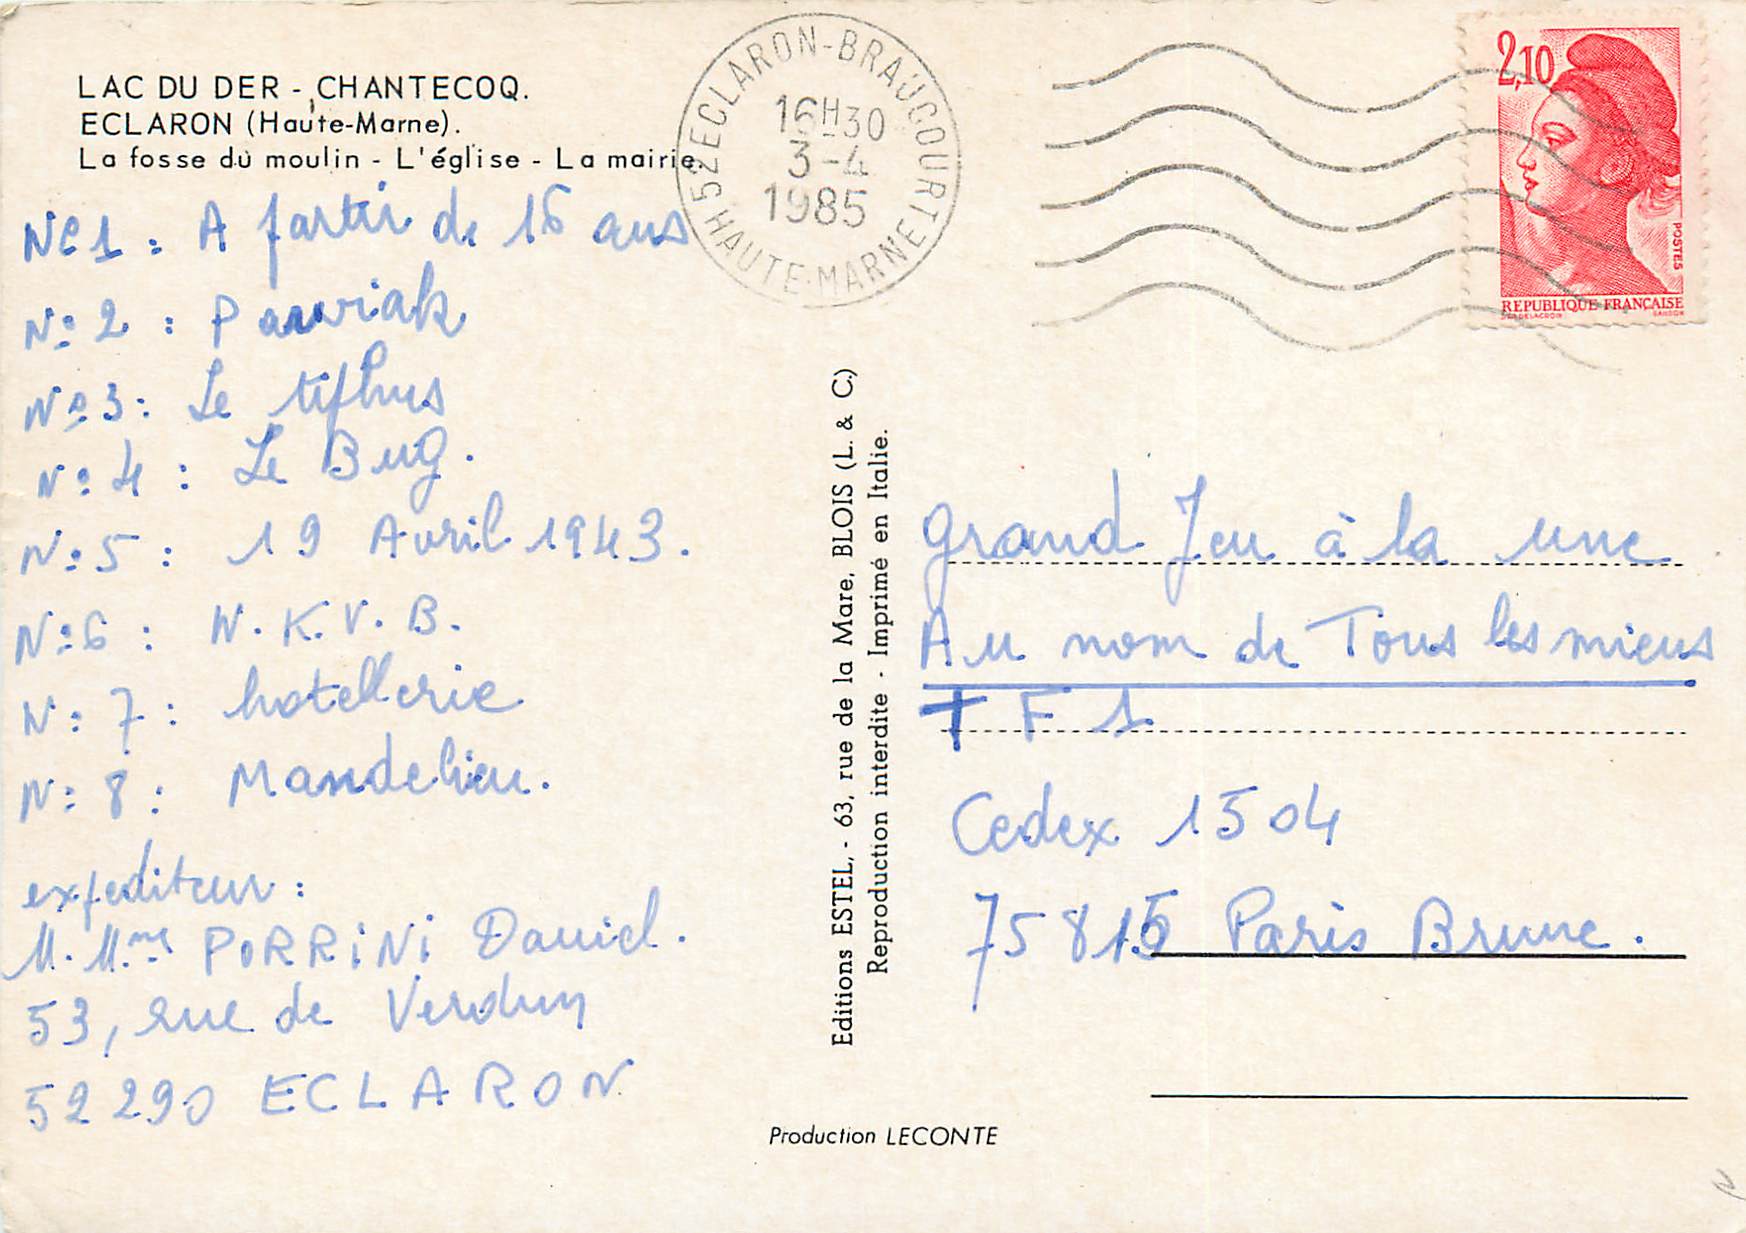 LAC DU DER - CHANTECOQ.
ECLARON (Haute-Marne).
La fosse du moulin - L'église - La mairie.
N°1 : A partir de 16 ans
N° 2 : Pawiak
N° 3 : Le tiphus
N° 4 : Le Bug.
N° 5 : 19 Avril 1943.
N° 6 : N.K.V.B.
N° 7 : hotellerie
N° 8 : Mandelieu.
expediteur :
M. Mme PORRiNi Daniel.
53, rue de Verdun
52290 ECLARON
52 ECLARON-BRAUCOURT
HAUTE-MARNE
16H30
3-4
1985
2,10
POSTES
REPUBLIQUE FRANÇAISE
DELACROIX
GANDON
Editions ESTEL, - 63, rue de la Mare, BLOIS (L. & C.)
Reproduction interdite - Imprimé en Italie.
grand Jeu à la une
Au nom de Tous les miens
TF1
Cedex 1504
75815 Paris Brune.
Production LECONTE